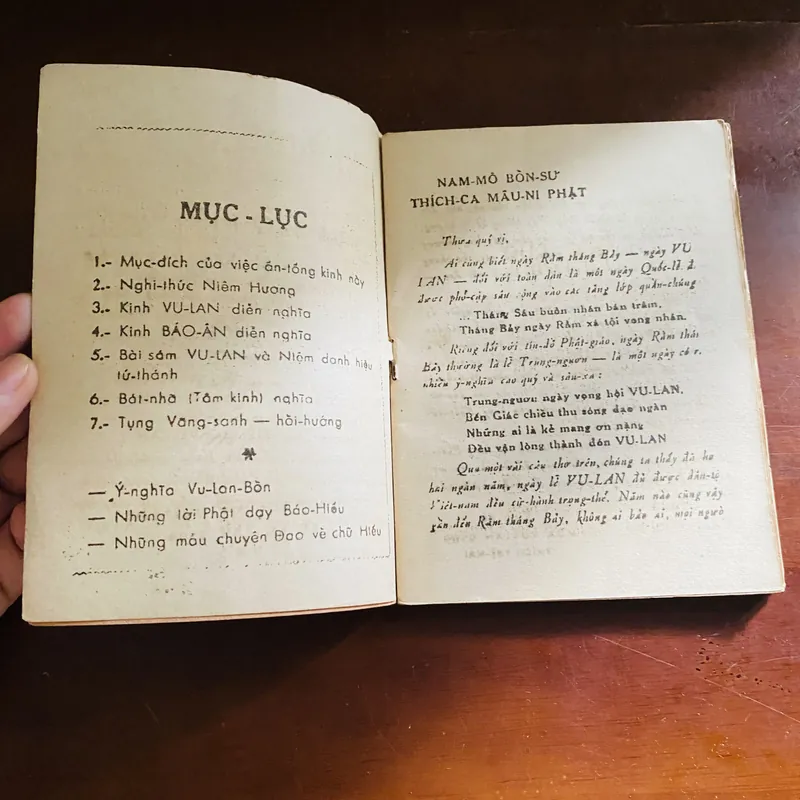 MỤC - LỤC
1.- Mục-đích của việc ấn-tống kinh này
2.- Nghi-thức Niệm Hương
3.- Kinh VU-LAN diễn nghĩa
4.- Kinh BÁO-ÂN diễn nghĩa
5.- Bài sám VU-LAN và Niệm danh hiệu
tứ-thánh
6.- Bát-nhã (Tâm kinh) nghĩa
7.- Tụng Vãng-sanh — hồi-hướng
*
— Ý-nghĩa Vu-Lan-Bồn
— Những lời Phật dạy Báo-Hiếu
— Những mẩu chuyện Đạo về chữ Hiếu
NAM-MÔ BỔN-SƯ
THÍCH-CA MÂU-NI PHẬT
Thưa quý vị,
Ai cũng biết ngày Rằm tháng Bảy — ngày VU
LAN — đối với toàn dân là một ngày Quốc-lễ đ
được phổ-cập sâu rộng vào các tầng lớp quần-chúng
... Tháng Sáu buôn nhãn bán trâm,
Tháng Bảy ngày Rằm xá tội vong nhân.
Riêng đối với tín-đồ Phật-giáo, ngày Rằm thá
Bảy thường là lễ Trung-nguơn — là một ngày có r
nhiều ý-nghĩa cao quý và sâu-xa :
Trung-nguơn ngày vọng hội VU-LAN,
Bến Giác chiều thu sóng dạo ngàn
Những ai là kẻ mang ơn nặng
Đều vận lòng thành đón VU-LAN
Qua một vài câu thơ trên, chúng ta thấy đã hơ
hai ngàn năm, ngày lễ VU-LAN đủ được dân-tộ
Việt-nam đều cử-hành trọng-thể. Năm nào cũng vậy
gần đến Rằm tháng Bảy, không ai bảo ai, mọi ngườ